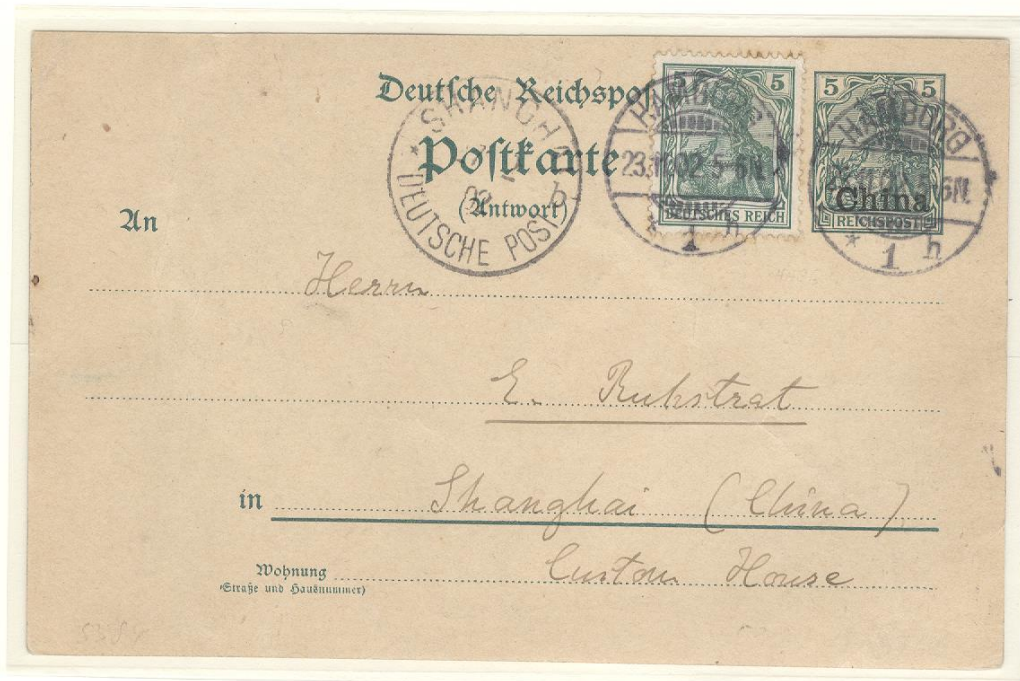 Deutsche Reichspost
Postkarte
(Antwort)
SHANGHAI
02 b
DEUTSCHE POST
5 5
DEUTSCHES REICH
HAMBURG
23.11.02 5-6N.
* 1 h
5 5
China
REICHSPOST
HAMBURG
* 1 h
An
Herrn
E. Ruhstrat
in Shanghai (China)
Wohnung Custom House
(Straße und Hausnummer)